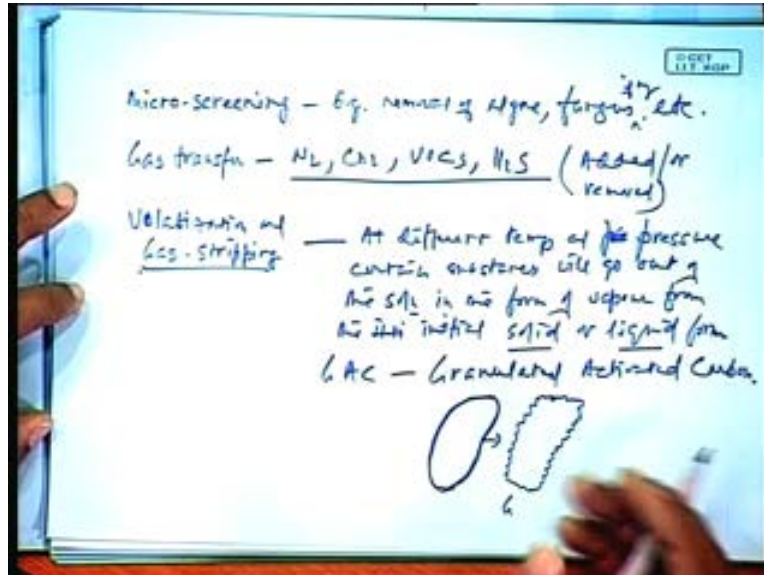 © CET
I.I.T. KGP
Micro-screening – E.g. removal of algae, fungus, etc.
Gas transfer – N2, CH2, VOCS, H2S (Added/or
removed)
Volatisation and
Gas-stripping — At different temp at pressure
certain substances will go out of
the soln in the form of vapour from
the initial solid or liquid form
GAC – Granulated Activated Carbon.
G